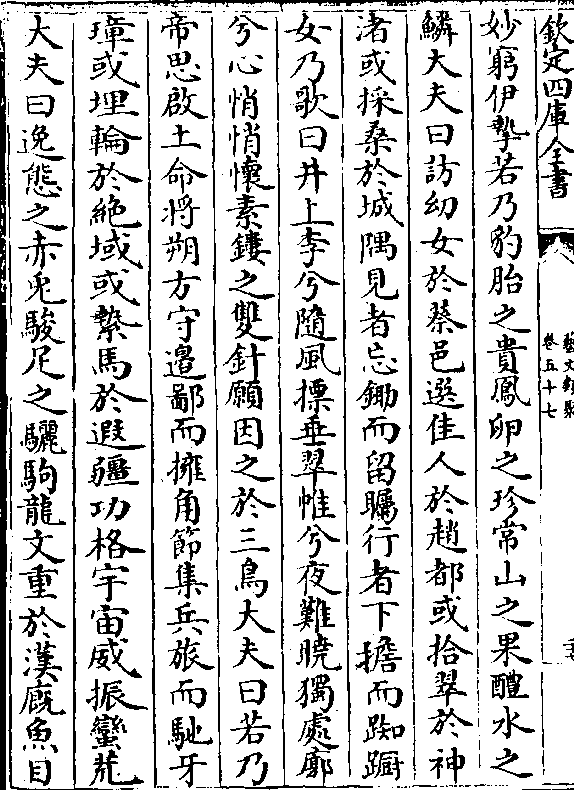 欽定四庫全書
藝文類聚
卷五十七
妙窮伊摯若乃豹胎之貴鳳卵之珍常山之果醴水之
鱗大夫曰訪幼女於蔡邑選佳人於趙都或拾翠於神
渚或採桑於城隅見者忘鋤而留矚行者下擔而踟蹰
女乃歌曰井上李兮隨風摽垂翠帷兮夜難曉獨處廓
兮心悄悄懷素鏤之雙針願因之於三鳥大夫曰若乃
帝思啟土命將朔方守邉鄙而擁角節集兵旅而馳牙
璋或埋輪於絶域或縶馬於遐疆功格宇宙威振蠻羌
大夫曰逸態之赤兎駿足之驪駒龍文重於漢廐魚目